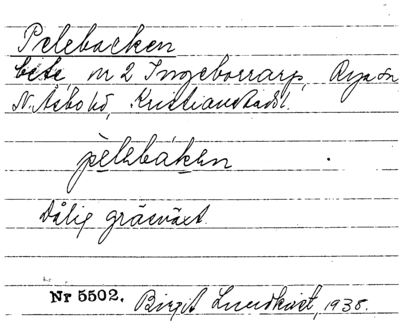 Pelebacken
bete, nr 2 Ingeborrarp, Rya sn
N. Åsbo hd, Kristianstads l.
pèlebáken
Dålig gräsväxt.
Nr 5502. Birgit Lundkvist, 1938.